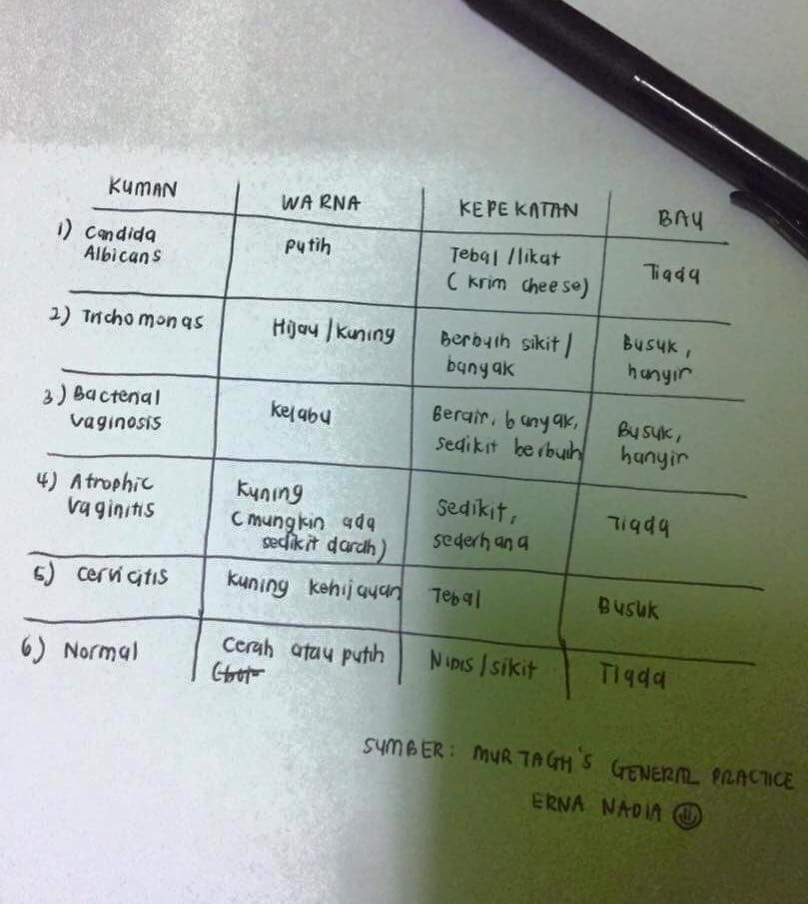 KUMAN WARNA KEPEKATAN BAU
1) Candida Albicans Putih Tebal / likat (krim cheese) Tiada
2) Trichomonas Hijau / Kuning Berbuih sikit / banyak Busuk, hanyir
3) Bacterial vaginosis Kelabu Berair, banyak, sedikit berbuih Busuk, hanyir
4) Atrophic vaginitis Kuning (mungkin ada sedikit darah) Sedikit, sederhana Tiada
5) Cervicitis Kuning kehijauan Tebal Busuk
6) Normal Cerah atau putih Nipis / sikit Tiada
SUMBER: MURTAGH'S GENERAL PRACTICE
ERNA NADIA